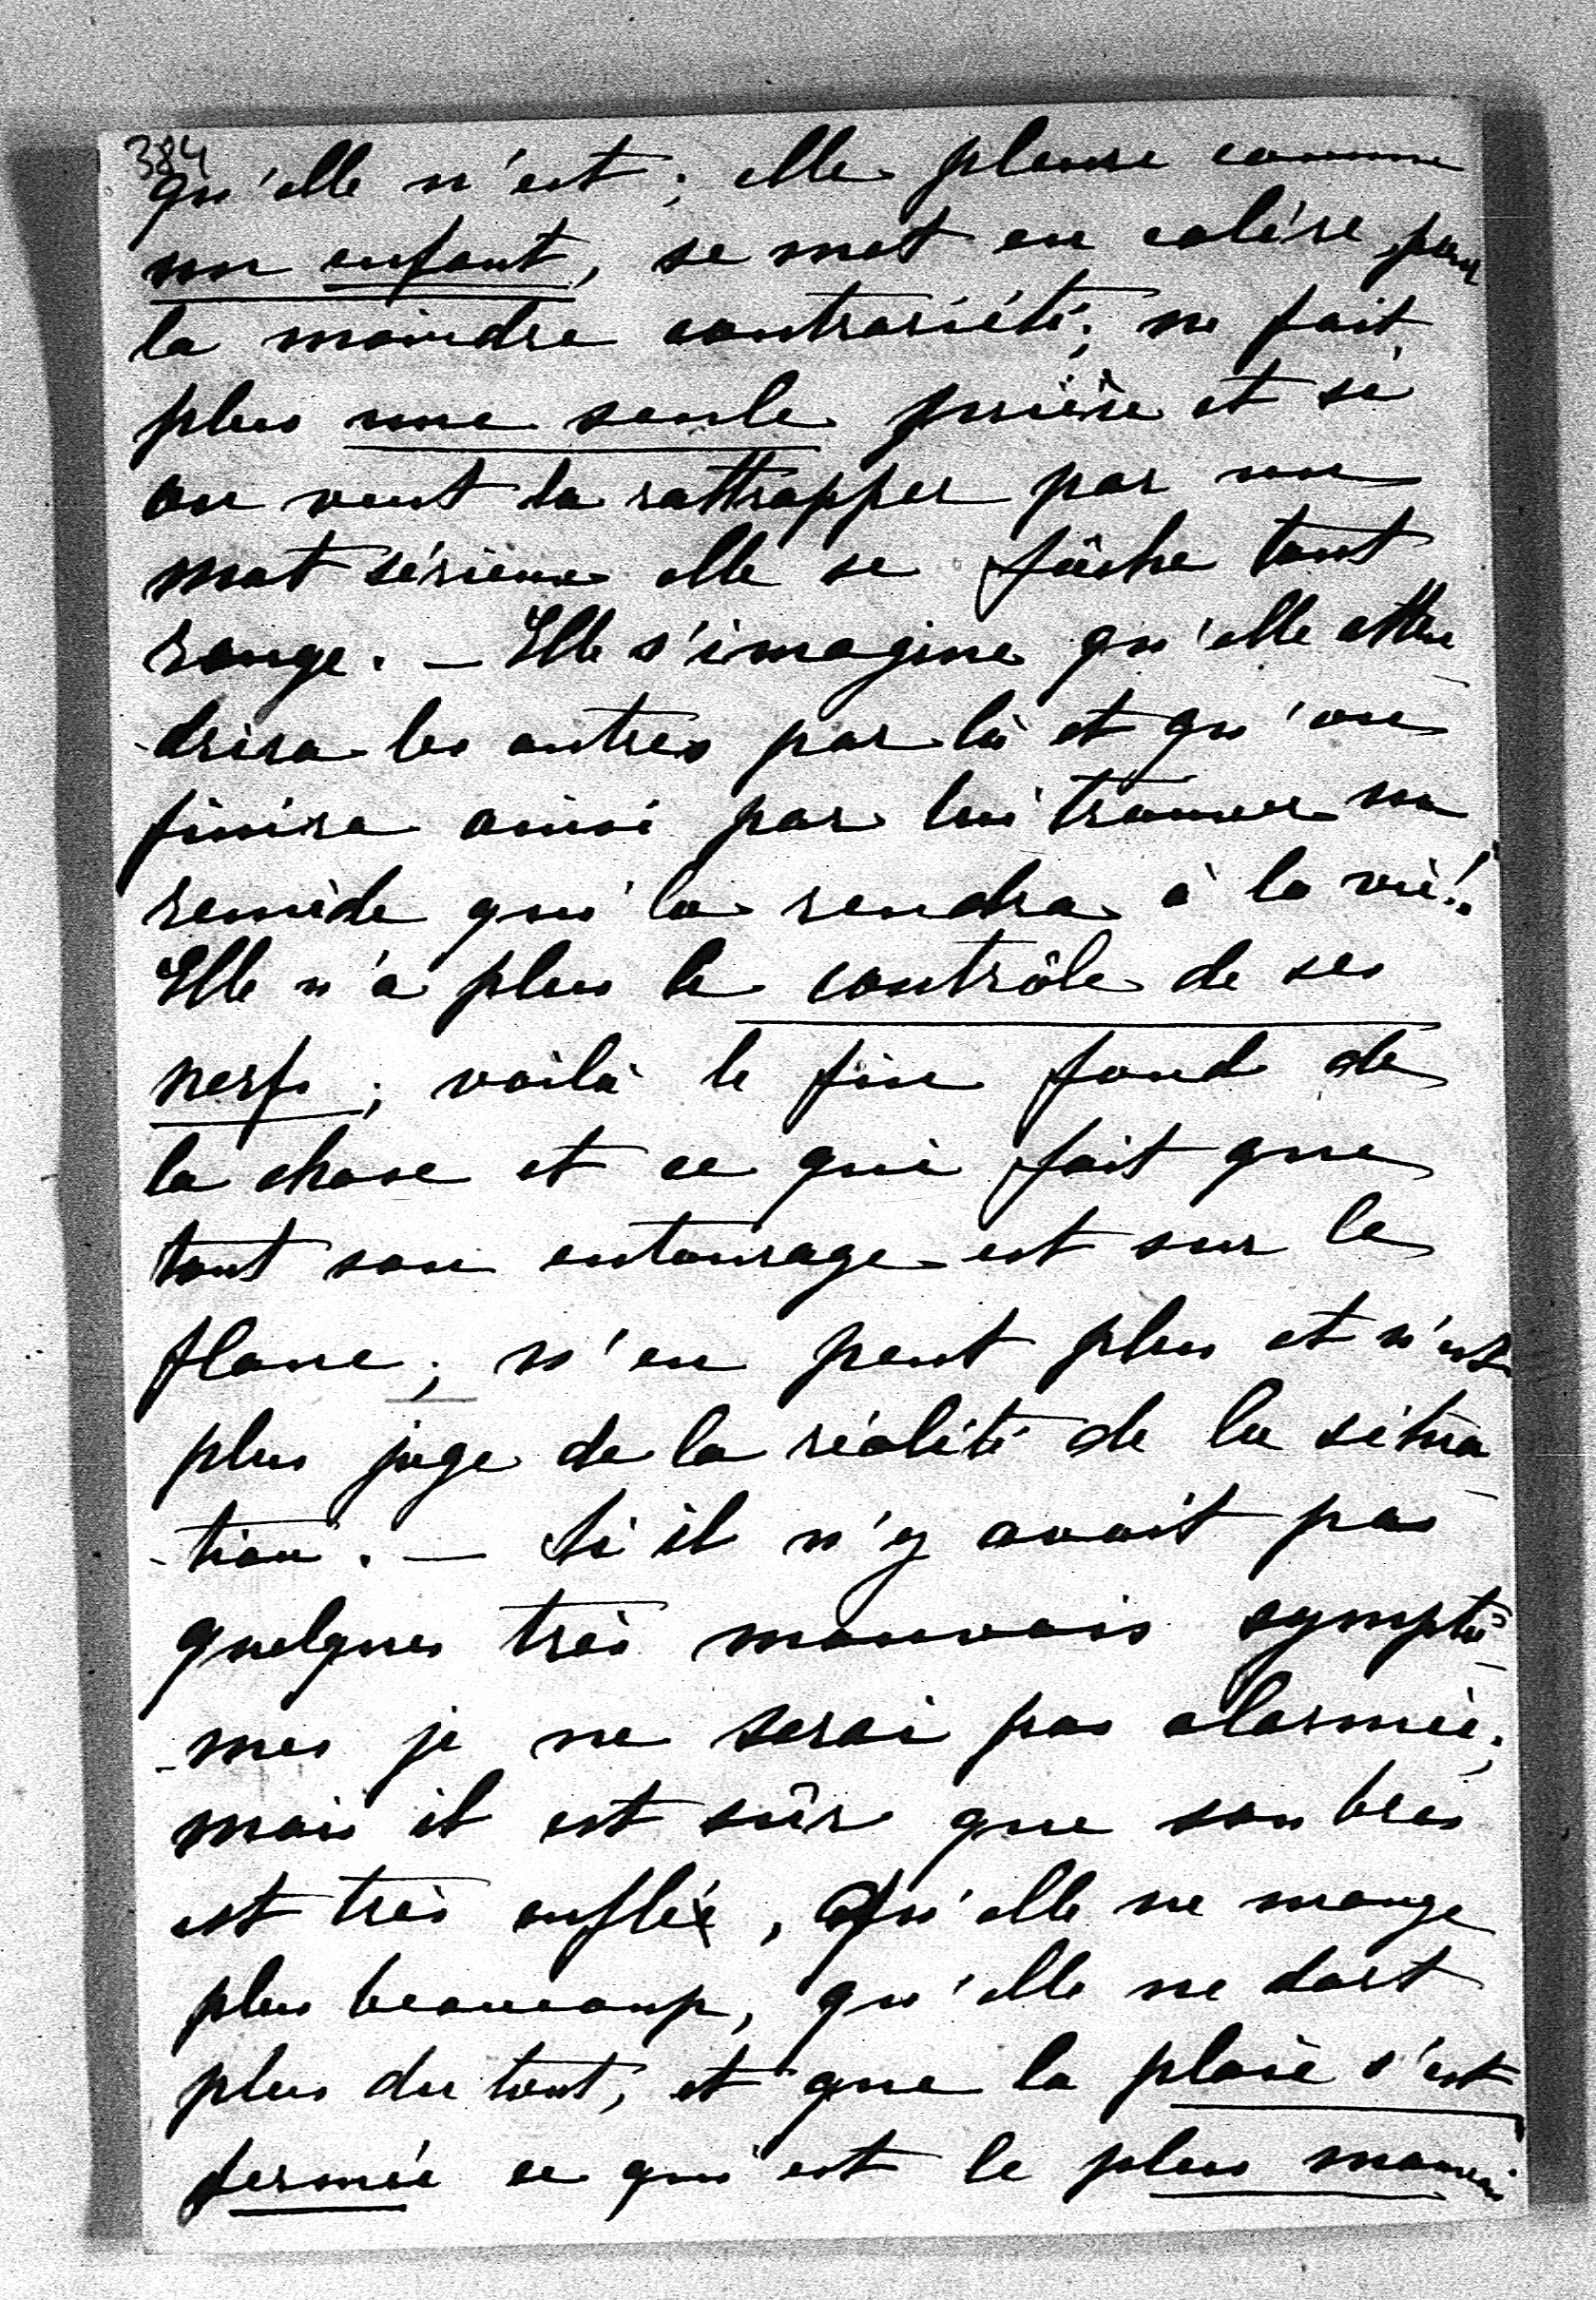 384
qu'elle n'est; elle pleure comme
un enfant, se met en colère pour
la moindre contrariété; ne fait
plus une seule prière et si
on veut la rattrapper par un
mot sérieux elle se fâche tout
rouge. — Elle s'imagine qu'elle atten
-drira les autres par là et qu'on
finira ainsi par lui trouver un
remède qui la rendra à la vie!.
Elle n'a plus le contrôle de ses
nerfs; voilà le fin fond de
la chose et ce qui fait que
tout son entourage est sur le
flanc; n'en peut plus et n'est
plus juge de la réalité de la situa
-tion. — Si il n'y avait pas
quelques très mauvais symptô
-mes je ne serai pas alarmée;
mais il est sûr que son bras
est très enflé, Qu'elle ne mange
plus beaucoup, qu'elle ne dort
plus du tout, et que la plaie s'est
fermée ce qui est le plus mauvais